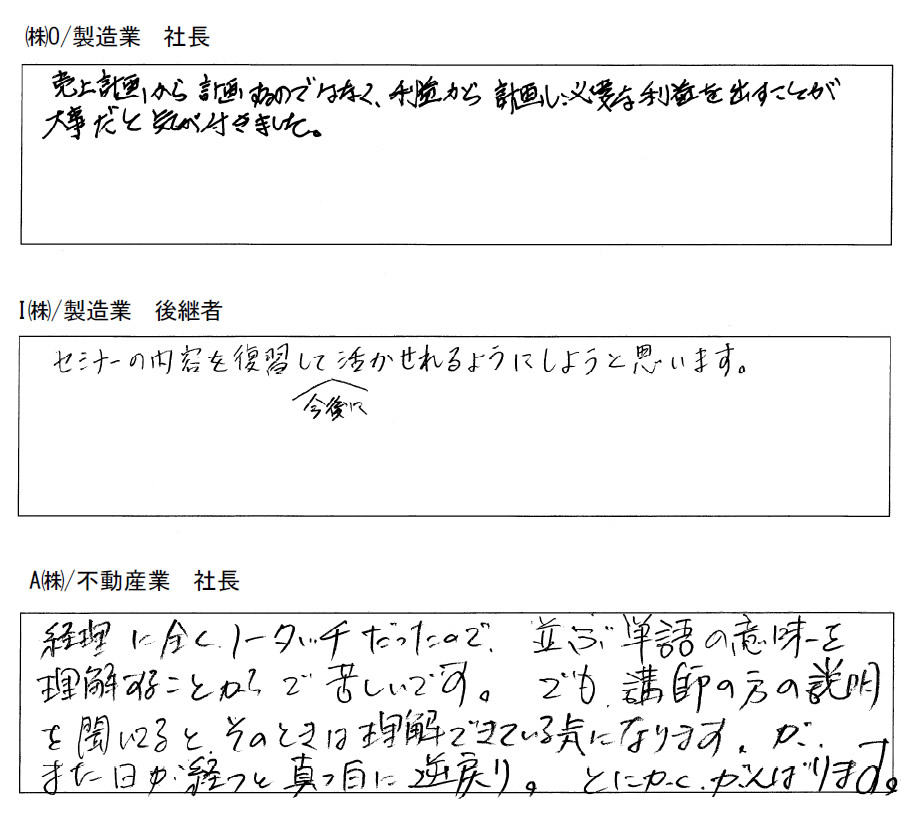 ㈱O/製造業　社長
売上計画から計画するのではなく、利益から計画し必要な利益を出すことが
大事だと気が付きました。
I㈱/製造業　後継者
セミナーの内容を復習して活かせれるようにしようと思います。
今後に
A㈱/不動産業　社長
経理に全くノータッチだったので、並ぶ単語の意味を
理解することからで苦しいです。でも、講師の方の説明
を聞いてると、そのときは理解できている気になります、が、
また日が経つと真っ白に逆戻り。とにかく、がんばります。